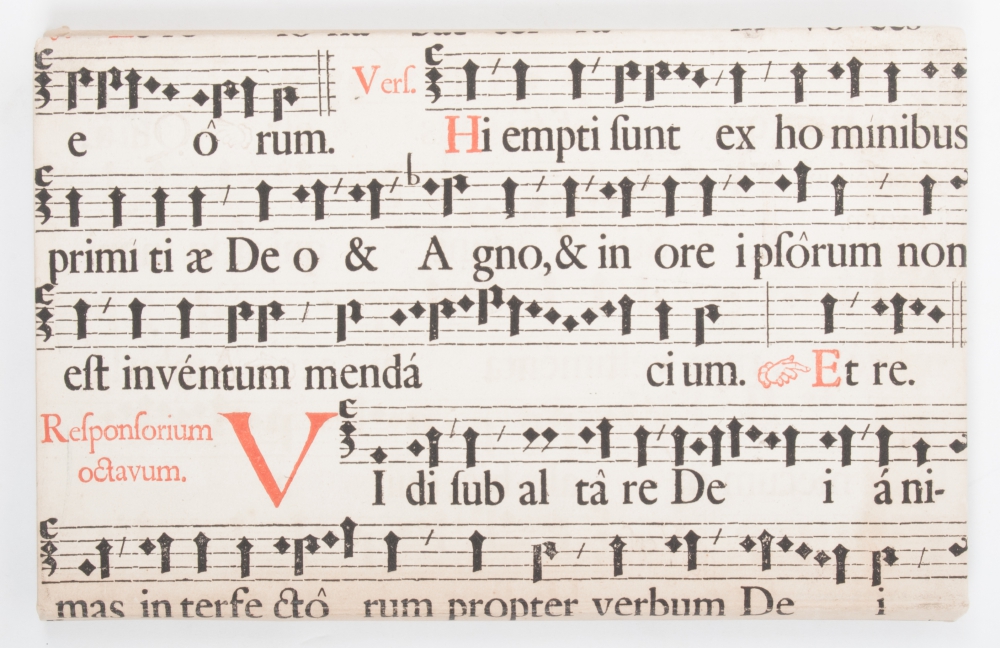 e ô rum. Verſ. Hi empti ſunt ex ho mínibus
primí ti æ De o & A gno, & in ore i pſôrum non
eſt invéntum mendá ci um. ☞ Et re.
Reſponſorium octavum. VI di ſub al tâ re De i á ni-
mas in terfe ctô rum propter verbum De i